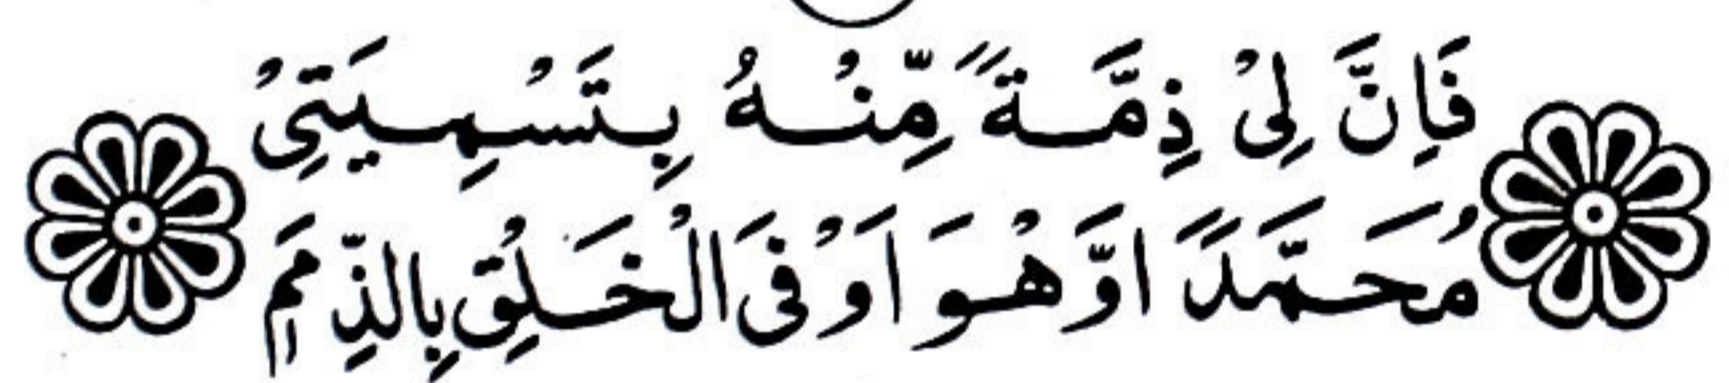 فَاِنَّ لِىْ ذِمَّةً مِّنْهُ بِتَسْمِيَتِىْ
مُحَمَّدً اوَّ هْوَ اَوْفَى الْخَلْقِ بِالذِّمَمِ